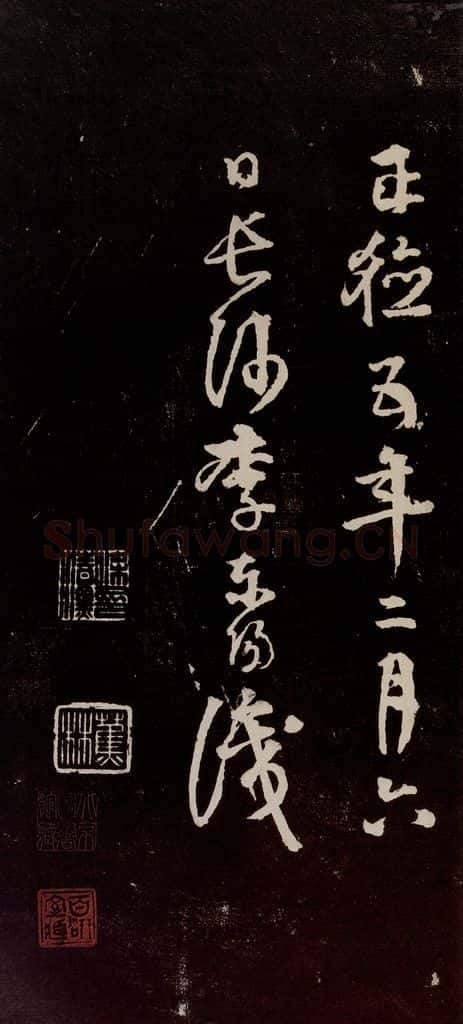 正德五年二月六
日長沙李東陽識
蕉林
Shufawang.CN